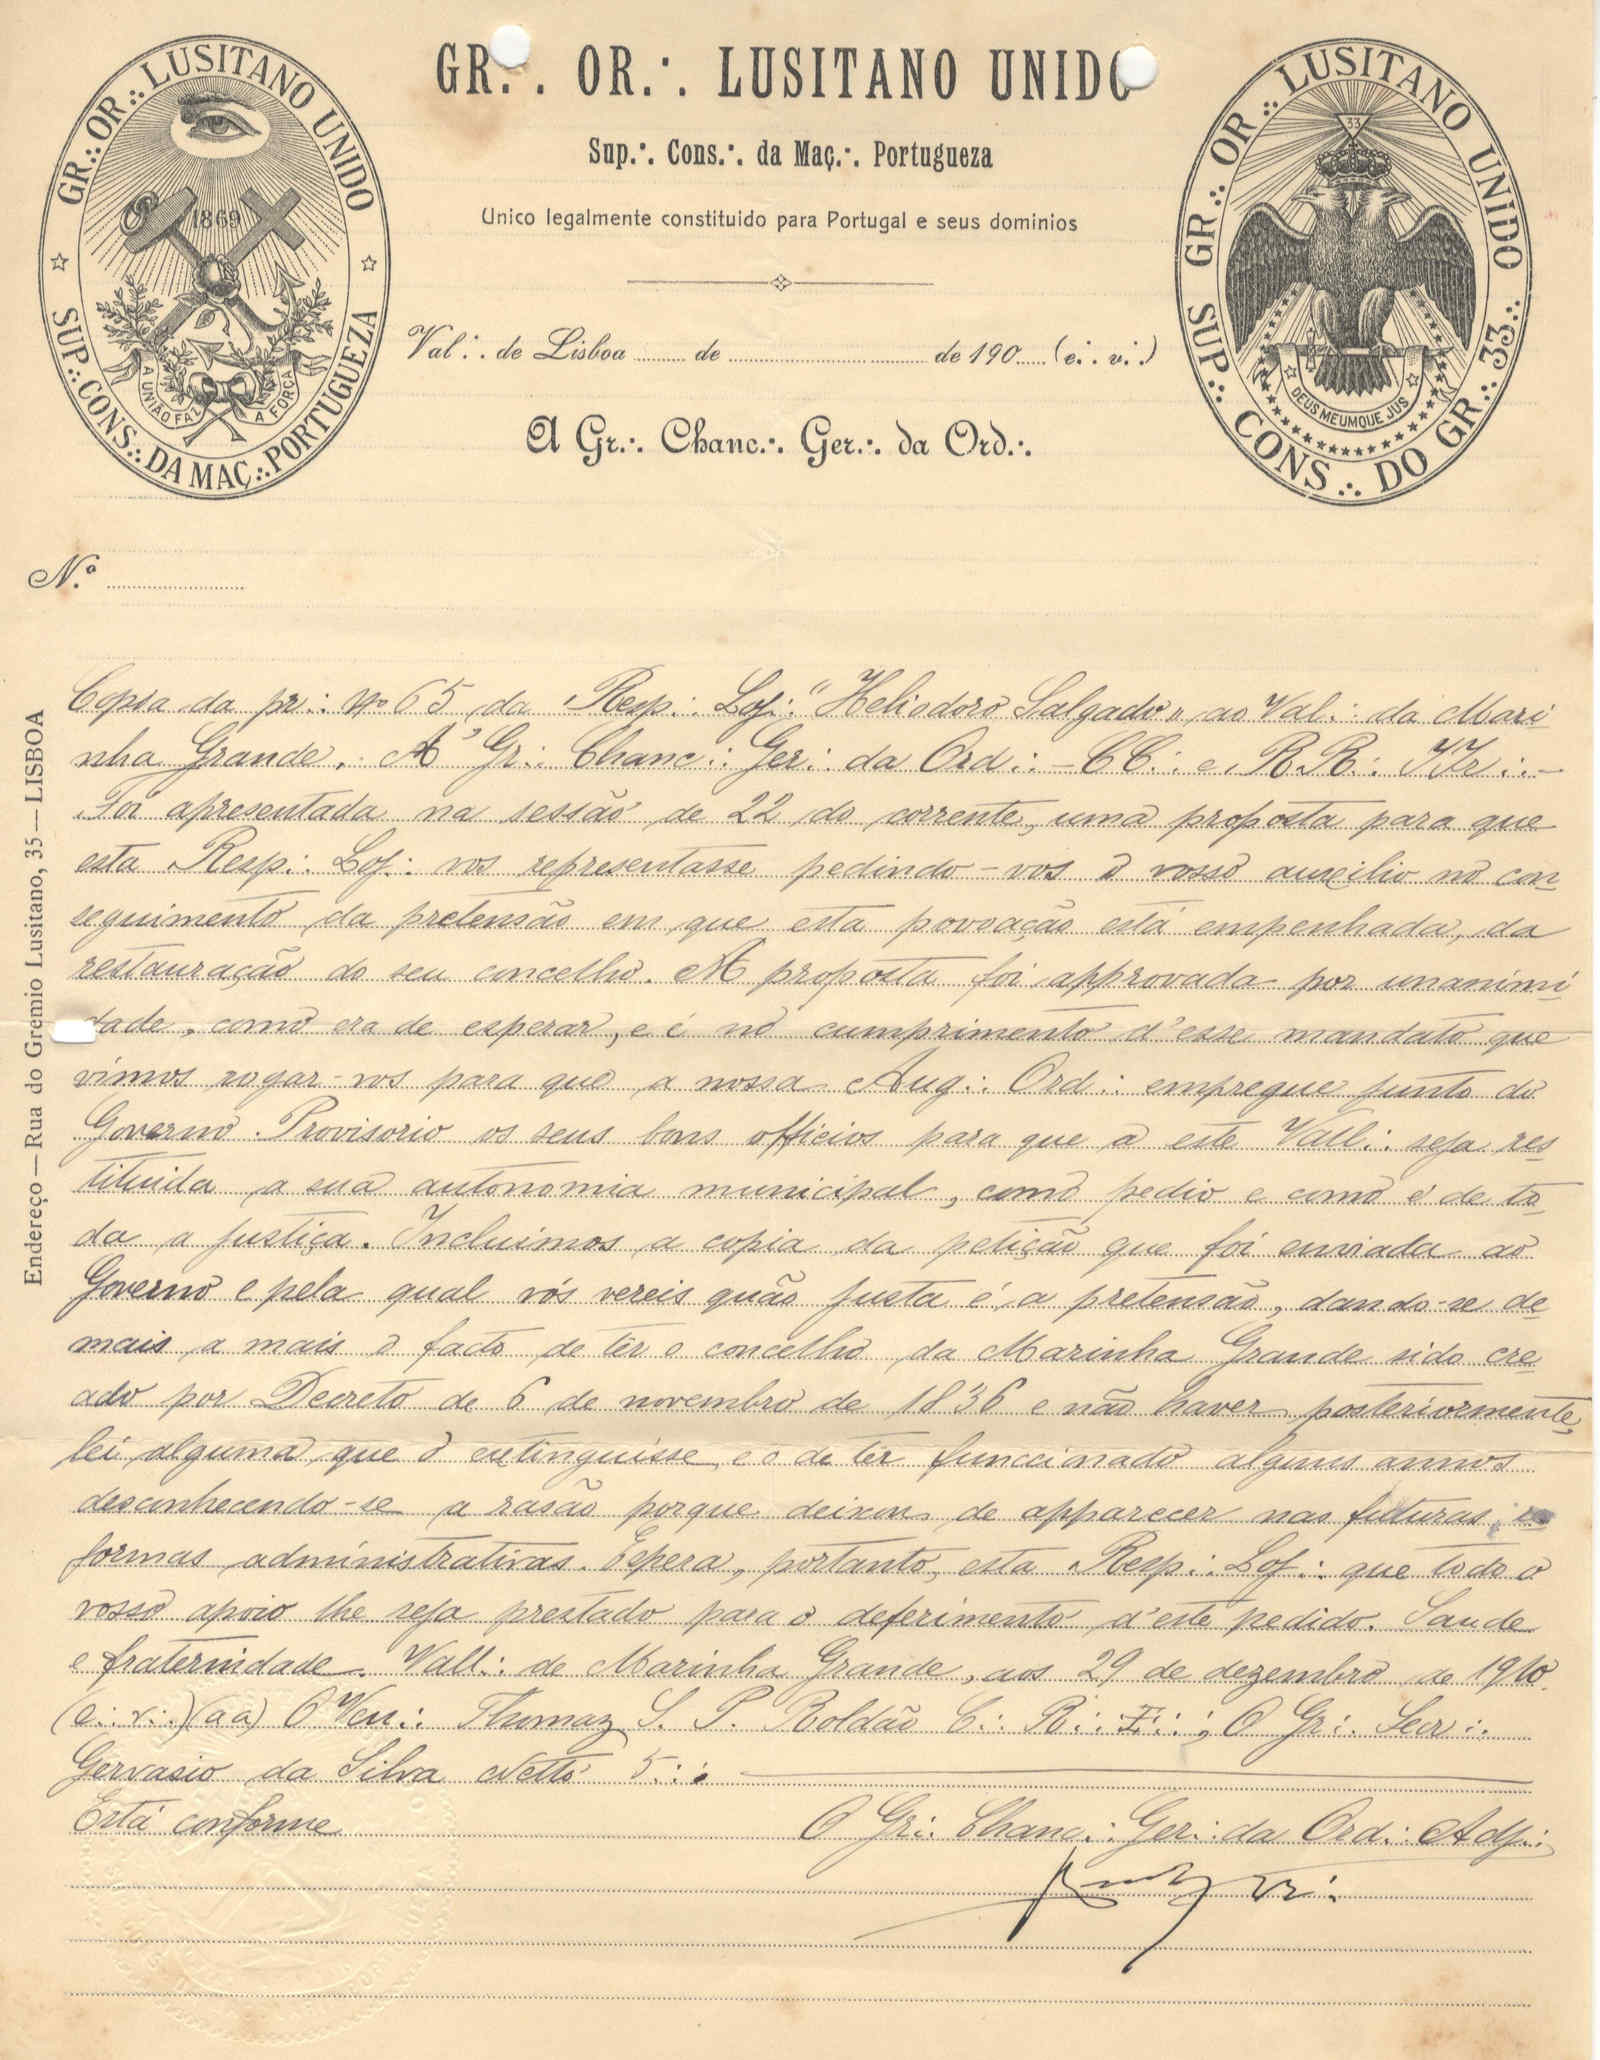 GR.·. OR.·. LUSITANO UNIDO
Sup.·. Cons.·. da Maç.·. Portugueza
Unico legalmente constituido para Portugal e seus dominios
GR.·. OR.·. LUSITANO UNIDO
SUP.·. CONS.·. DA MAÇ.·. PORTUGUEZA
1869
A UNIÃO FAZ A FORÇA
GR.·. OR.·. LUSITANO UNIDO
SUP.·. CONS.·. DO GR.·. 33.·.
33
DEUS MEUMQUE JUS
Val.·. de Lisboa ...... de .................. de 190.... (e.·. v.·.)
A Gr.·. Chanc.·. Ger.·. da Ord.·.
N.º ..................
Endereço — Rua do Gremio Lusitano, 35 — LISBOA
Copia da pr.·. Nº 65 da Resp.·. Loj.·. "Heliodoro Salgado" ao Val.·. da Mari
nha Grande. A' Gr.·. Chanc.·. Ger.·. da Ord.·. – CC.·. e RR.·. IIr.·. –
Foi apresentada na sessão de 22 do corrente, uma proposta para que
esta Resp.·. Loj.·. vos representasse pedindo-vos o vosso auxilio no con
seguimento da pretensão em que esta povoação está empenhada, da
restauração do seu concelho. A proposta foi approvada por unanimi
dade, como era de esperar, e é no cumprimento d'esse mandato que
vimos rogar-vos para que a nossa Aug.·. Ord.·. empregue junto do
Governo Provisorio os seus bons officios para que a este Vall.·. seja res
tituida a sua autonomia municipal, como pedio e como é de to
da a justiça. Incluimos a copia da petição que foi enviada ao
Governo e pela qual vós vereis quão justa é a pretensão, dando-se de
mais a mais o facto de ter o concelho da Marinha Grande sido cre
ado por Decreto de 6 de novembro de 1836 e não haver posteriormente
lei alguma que o extinguisse, e o de ter funccionado alguns annos
desconhecendo-se a rasão porque deixou de apparecer nas futuras re
formas administrativas. Espera, portanto, esta Resp.·. Loj.·. que todo o
vosso apoio lhe seja prestado para o deferimento d'este pedido. Saude
e fraternidade. Vall.·. de Marinha Grande, aos 29 de dezembro de 1910.
(e.·. v.·.) (a a) O Ven.·. Thomaz S. P. Roldão C.·. R.·. ; O Gr.·. Secr.·.
Gervasio da Silva Netto 5.·.
Está conforme
O Gr.·. Chanc.·. Ger.·. da Ord.·. Adj.·.